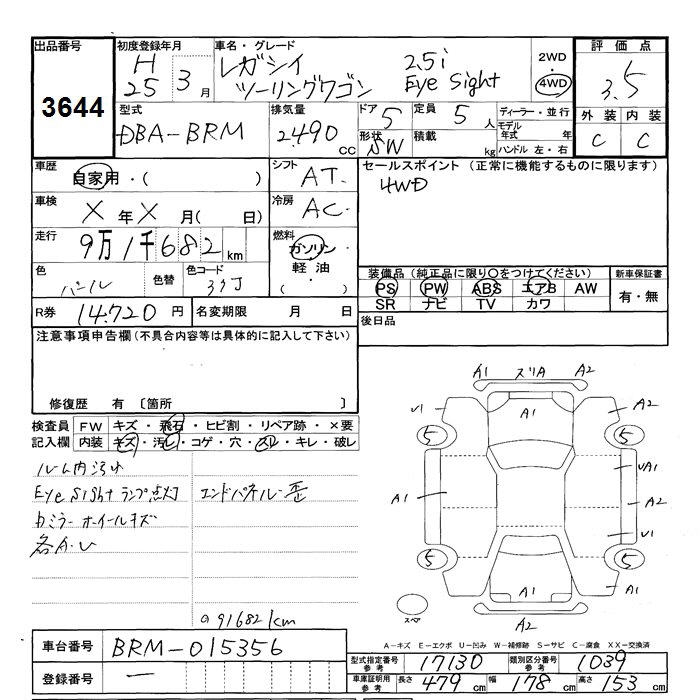 出品番号 初度登録年月 車名・グレード 評価点
3644
H 25 3月
レガシィ 2.5i
ツーリングワゴン Eye Sight
2WD
4WD
3.5
型式 排気量 ドア 定員 ディーラー・並行 外装 内装
DBA-BRM 2490cc 5 5人
形状 積載 モデル年式 年
SW kg ハンドル 左・右
C C
車歴 自家用・( ) シフト AT セールスポイント (正常に機能するものに限ります)
4WD
車検 X年X月( 日) 冷房 AC
走行 9万1千682km 燃料 ガソリン・
軽油・
( )
色 パール 色替 色コード 37J
装備品 (純正品に限り○をつけてください) 新車保証書
PS PW ABS エアB AW 有・無
SR ナビ TV カワ
R券 14,720円 名変期限 月 日 後日品
注意事項申告欄(不具合内容等は具体的に記入して下さい)
修復歴 有 〔箇所 〕
検査員 FW キズ・飛石・ヒビ割・リペア跡・×要
記入欄 内装 キズ・汚レ・コゲ・穴・スレ・キレ・破レ
ルーム内汚れ
Eye Sight ランプ点灯 エンドパネル歪
カミラー ホイールキズ
各A.U
91682km
A1 スリA A2
U1 A1 A2
5 5
A1 UA1
A2
U1
5 5
A1 A1
スペア A2
A-キズ E-エクボ U-凹み W-補修跡 S-サビ C-腐食 XX-交換済
車台番号 BRM-015356
型式指定番号 参考 17130 類別区分番号 参考 1039
登録番号 一
車庫証明用 参考 長さ 479cm 幅 178cm 高さ 153cm